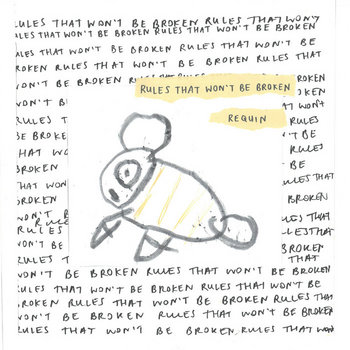 RULES THAT WON'T BE BROKEN RULES THAT WON'T
RULES THAT WON'T BE BROKEN RULES THAT WON'T BE
WON'T BE BROKEN RULES THAT WON'T BE BROKEN
ROKEN RULES THAT WON'T BE BROKEN RULES THAT
WON'T BE BROKEN RULES THAT
WON'T B
RULES THAT WON'T BE BROKEN
REQUIN
RULES T
BE BROKEN
THAT WO
WON'T B
ROKEN
WON'T B
RULES
RULES
WON'T BE
BROKEN
BROKEN
THAT WON'T
RULES
WON'T BE
RULES
BE
THAT
BROKEN
RULES THAT
BROKEN
BROKEN RULES THAT WON'T BE BROKEN THAT
WON'T BE BROKEN RULES THAT WON'T BE BROKEN
RULES THAT WON'T BE BROKEN RULES THAT WON'T BE
BROKEN RULES THAT WON'T BE BROKEN RULES THAT
WON'T BE BROKEN RULES THAT WON'T BE BROKEN
RULES THAT WON'T BE BROKEN RULES THAT WON